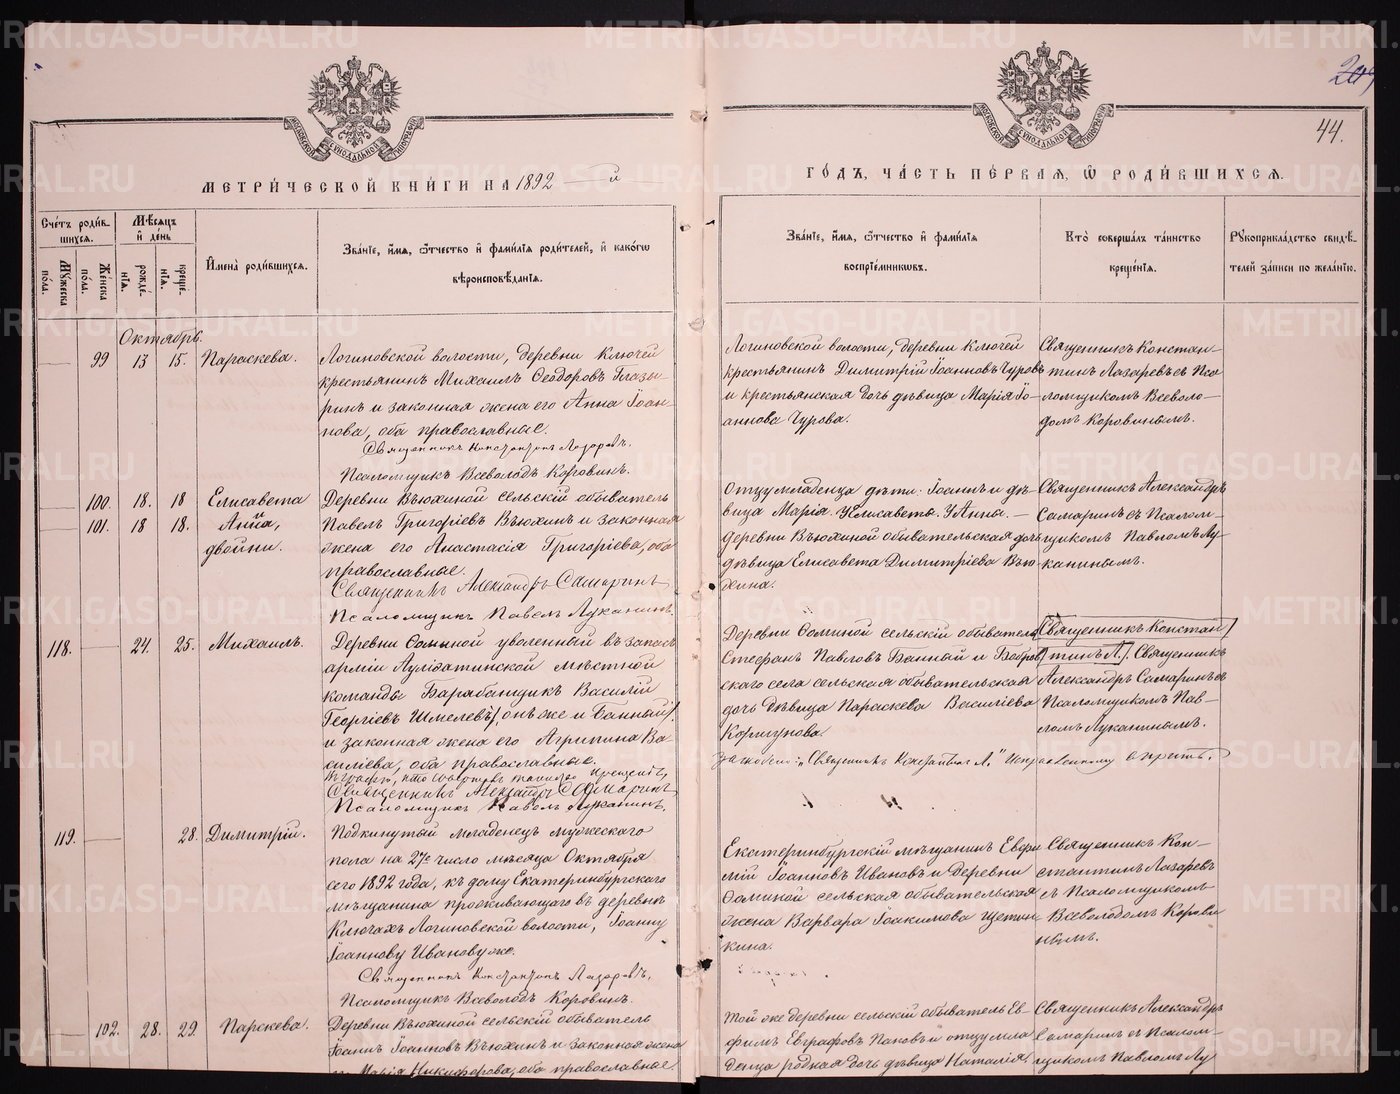 МЕТРИ́ЧЕСКОЙ КНИ́ГИ НА 1892 й
Сче́тъ роди́в-
шихся.
Мѣ́сяцъ
и҆ де́нь
Мꙋ́жеска
по́ла.
Же́нска
по́ла.
рожде́-
нїя.
креще́-
нїя.
И҆мена̀ роди́вшихся.
Зва́нїе, и҆́мя, ѻ҆́тчество и҆ фами́лїя роди́телей, и҆ како́гѡ
вѣроисповѣ́данїя.
Октябрь.
— 99 13 15. Параскева.
Логиновской волости, деревни Ключей
крестьянинъ Михаилъ Ѳеодоровъ Глазы-
ринъ и законная жена его Анна Іоан-
нова, оба православные.
Священникъ Константинъ Лазаревъ.
Псаломщикъ Всеволодъ Коровинъ.
— 100. 18. 18 Елисавета
— 101. 18 18. и Анна,
двойни.
Деревни Вьюхиной сельскій обыватель
Павелъ Григоріевъ Вьюхинъ и законная
жена его Анастасія Григоріева, оба
православные.
Священникъ Александръ Самаринъ
Псаломщик Павелъ Луканинъ.
118. — 24. 25. Михаилъ.
Деревни Ѳоминой уволенный въ запасъ
арміи Аулізатинской мѣстной
команды Барабанщикъ Василій
Георгіевъ Шмелевъ /онъ же и Банный/
и законная жена его Агрипина Ва-
силіева, оба православные.
крещенія,
Священникъ Александръ Самаринъ
Псаломщикъ Павелъ Луканинъ.
119. — 28. Димитрій.
Подкинутый младенецъ мужескаго
пола на 27е число мѣсяца Октября
сего 1892 года, къ дому Екатеринбургскаго
мѣщанина проживающаго въ деревнѣ
Ключахъ Логиновской волости, Іоанну
Іоаннову Иванову же.
Священникъ Константинъ Лазаревъ,
Псаломщикъ Всеволодъ Коровинъ.
— 102. 28. 29. Парскева.
Деревни Вьюхиной сельскій обыватель
Іоаннъ Іоанновъ Вьюхинъ и законная жена
Марія Никифорова, оба православные.
44.
ГО́ДЪ, ЧА́СТЬ ПЕ́РВАЯ, Ѡ҆ РОДИ́ВШИХСЯ.
Зва́нїе, и҆́мя, ѻ҆́тчество и҆ фами́лїя
воспрїе́мниковъ.
Кто̀ соверша́лъ та́инство
креще́нїя.
Рꙋкоприкла́дство свидѣ́-
телей за́писи по жела́нїю.
Логиновской волости, деревни Ключей
крестьянинъ Димитрій Іоанновъ Чуровъ
и крестьянская дочь дѣвица Марія Іо-
аннова Чурова.
Священникъ Констан-
тинъ Лазаревъ съ Пса-
ломщикомъ Всеволо-
домъ Коровинымъ.
Отцу младенца дѣти: Іоаннъ и дѣ-
вица Марія. У Елисаветы. У Анны. —
деревни Вьюхиной обывательская дочь
дѣвица Елисавета Димитріева Вью-
хина.
Священникъ Александръ
Самаринъ съ Псалом-
щикомъ Павломъ Лу-
канинымъ.
Деревни Ѳоминой сельскій обыватель
Стефанъ Павловъ Банный и Бобров-
скаго села сельская обывательская
дочь дѣвица Параскева Василіева
Коршунова.
Священникъ Констан
тинъ Л. Священникъ
Александръ Самаринъ съ
Псаломщикомъ Пав-
ломъ Луканинымъ.
"Священникъ Константинъ Л."
Екатеринбургскій мѣщанинъ Евфи
мій Іоанновъ Ивановъ и деревни
Ѳоминой сельская обывательская
жена Варвара Іоакимова Щетин-
кина.
Священникъ Кон-
стантинъ Лазаревъ
съ Псаломщикомъ
Всеволодомъ Корови
нымъ.
Той же деревни сельскій обыватель Ев-
фимъ Евграфовъ Пановъ и отцу мла
денца родная дочь дѣвица Наталія
Священникъ Александръ
Самаринъ съ Псалом-
щикомъ Павломъ Лу
METRIKI.GASO-URAL.RU